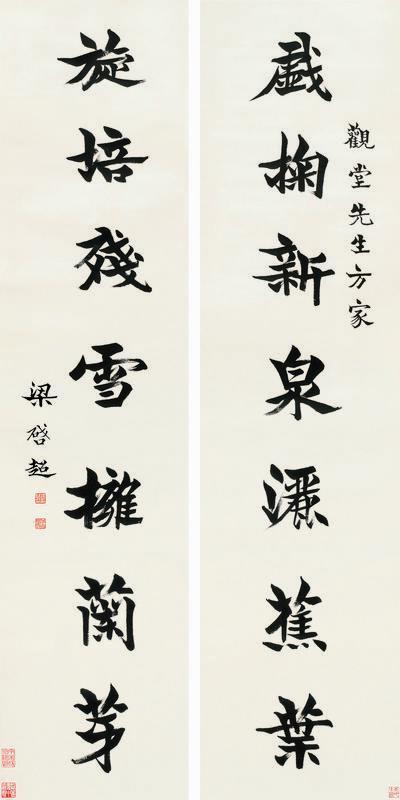 觀堂先生方家
戲掬新泉灑蕉葉
旋培殘雪擁蘭芽
梁啓超